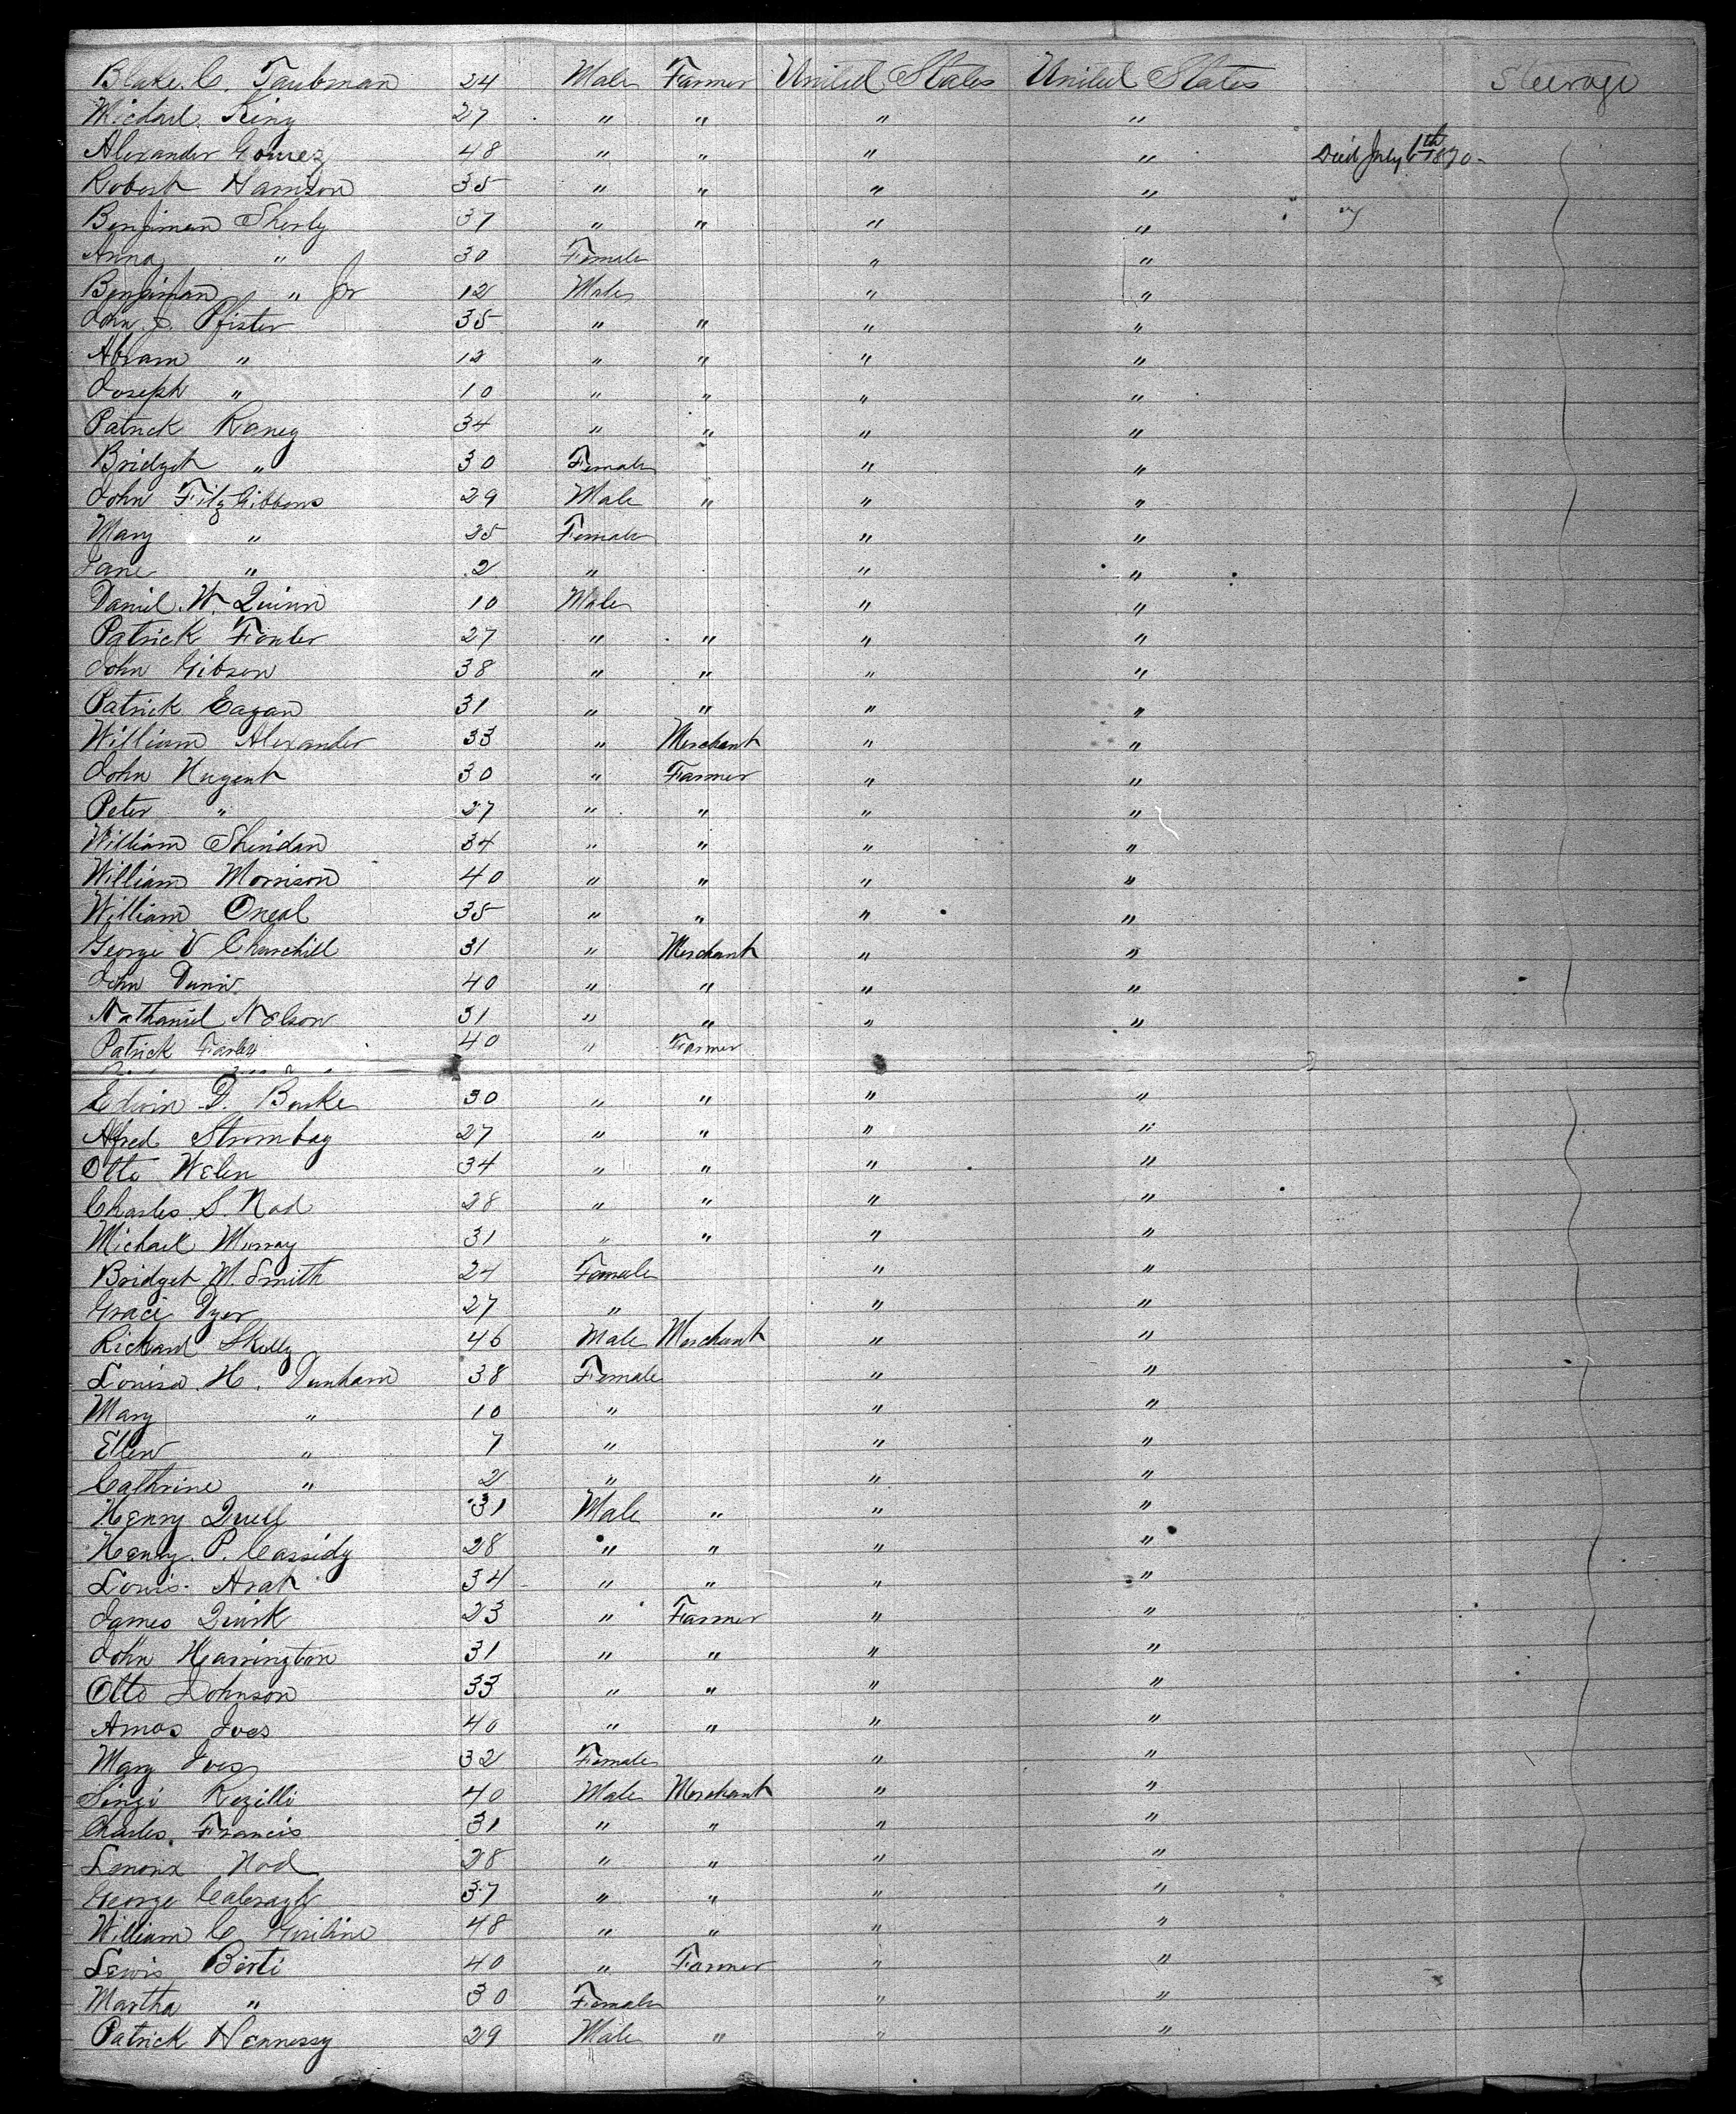 Blake. C. Taubman 24 Male Farmer United States United States Steerage
Michael King 27 " " " "
Alexander Gomez 48 " " " " Died July 6th 1870-
Robert Harrison 35 " " " "
Benjiman Sherly 37 " " " "
Anna " 30 Female " "
Benjiman " Jr 12 Male " "
John J. Pfister 35 " " " "
Abram " 12 " " " "
Joseph " 10 " " " "
Patrick Raney 34 " " " "
Bridget " 30 Female " "
John FitzGibbons 29 Male " " "
Mary " 25 Female " "
Jane " 2 " " "
Daniel. W. Quinn 10 Male " "
Patrick Fowler 27 " " " "
John Gibson 38 " " " "
Patrick Eagan 31 " " " "
William Alexander 33 " Merchant " "
John Nugent 30 " Farmer " "
Peter " 27 " " " "
William Sheridan 34 " " " "
William Morrison 40 " " " "
William Oneal 35 " " " "
George V Churchill 31 " Merchant " "
John Dunn 40 " " " "
Nathaniel Nelson 31 " " " "
Patrick 40 " Farmer
Edwin D. Burke 30 " " " "
Alfred Strombay 27 " " " "
Otto Welen 34 " " " "
Charles. S. Nad 28 " " " "
Michael Murray 31 " " " "
Bridget M Smith 24 Female " "
Grace Dyer 27 " " "
Richard Skelly 46 Male Merchant " "
Louisa. H. Dunham 38 Female " "
Mary " 10 " " "
Ellen " 7 " " "
Cathrine " 2 " " "
Henry Quill 31 Male " " "
Henry. P. Cassidy 28 " " " "
Louis. Arat 34 " " " "
James Quirk 23 " Farmer " "
John Harrington 31 " " " "
Otto Johnson 33 " " " "
Amos Ives 40 " " " "
Mary Ives 32 Female " "
Rezilli 40 Male Merchant " "
Charles. Francis 31 " " " "
Nod 28 " " " "
George 37 " " " "
William C 48 " " " "
Lewis Berti 40 " Farmer " "
Martha " 30 Female " "
Patrick Hennessy 29 Male " " "